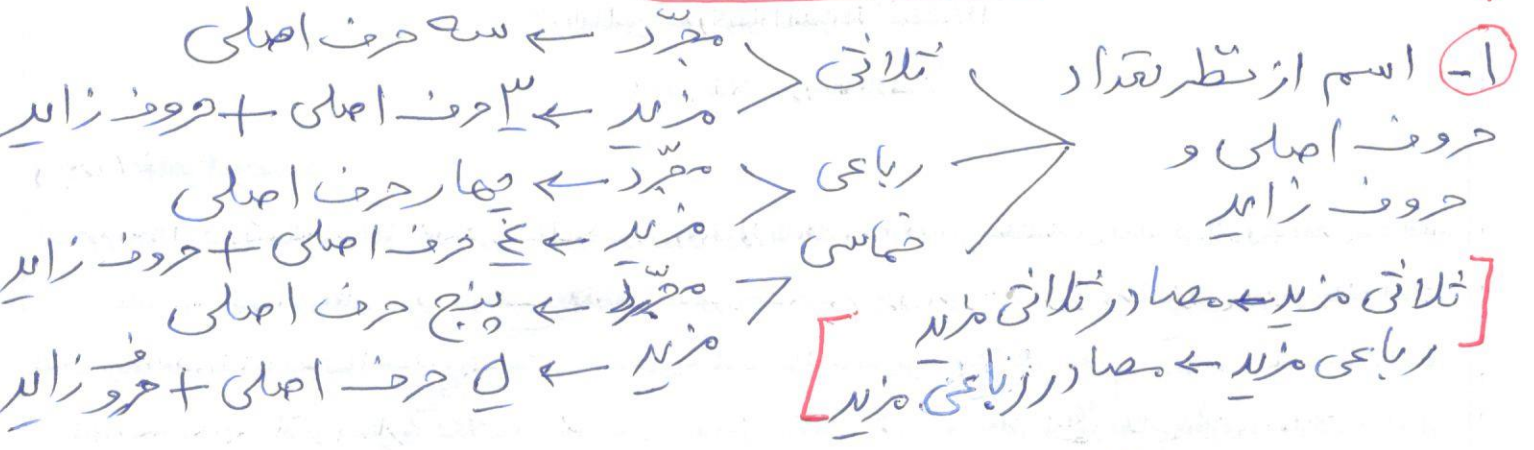 ۱- اسم از نظر تعداد
حروف اصلی و
حروف زاید
ثلاثی
رباعی
خماسی
مجرّد ← سه حرف اصلی
مزید ← ۳ حرف اصلی + حروف زاید
مجرّد ← چهار حرف اصلی
مزید ← ۴ حرف اصلی + حروف زاید
مجرّد ← پنج حرف اصلی
مزید ← ۵ حرف اصلی + حروف زاید
[ثلاثی مزید ← مصادر ثلاثی مزید
رباعی مزید ← مصادر رباعی مزید]